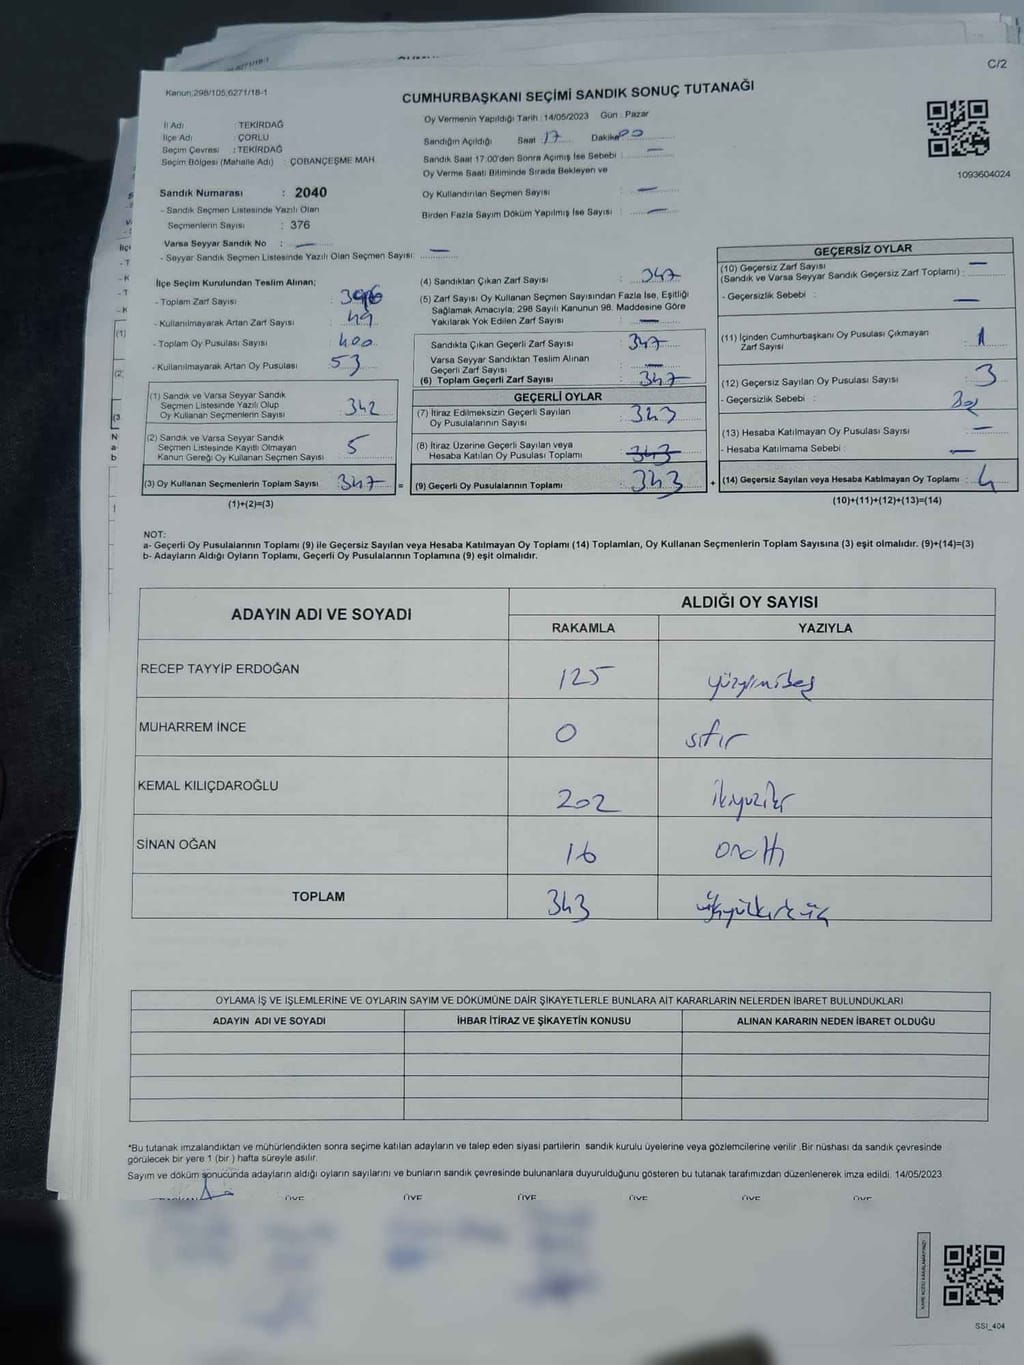 C/2
Kanun;298/105,6271/18-1
CUMHURBAŞKANI SEÇİMİ SANDIK SONUÇ TUTANAĞI
İl Adı : TEKİRDAĞ
İlçe Adı : ÇORLU
Seçim Çevresi : TEKİRDAĞ
Seçim Bölgesi (Mahalle Adı) : ÇOBANÇEŞME MAH.
Oy Vermenin Yapıldığı Tarih : 14/05/2023 Gün : Pazar
Sandığın Açıldığı Saat 17 Dakika 00
Sandık Saat 17:00'den Sonra Açımış İse Sebebi : —
Oy Verme Saati Bitiminde Sırada Bekleyen ve
Oy Kullandırılan Seçmen Sayısı : —
Birden Fazla Sayım Döküm Yapılmış İse Sayısı : —
1093604024
Sandık Numarası : 2040
- Sandık Seçmen Listesinde Yazılı Olan
Seçmenlerin Sayısı : 376
Varsa Seyyar Sandık No : —
- Seyyar Sandık Seçmen Listesinde Yazılı Olan Seçmen Sayısı: —
İlçe Seçim Kurulundan Teslim Alınan;
- Toplam Zarf Sayısı : 396
- Kullanılmayarak Artan Zarf Sayısı : 49
- Toplam Oy Pusulası Sayısı : 400
- Kullanılmayarak Artan Oy Pusulası : 53
(1) Sandık ve Varsa Seyyar Sandık
Seçmen Listesinde Yazılı Olup
Oy Kullanan Seçmenlerin Sayısı : 342
(2) Sandık ve Varsa Seyyar Sandık
Seçmen Listesinde Kayıtlı Olmayan
Kanun Gereği Oy Kullanan Seçmen Sayısı : 5
(3) Oy Kullanan Seçmenlerin Toplam Sayısı : 347 =
(1)+(2)=(3)
(4) Sandıktan Çıkan Zarf Sayısı : 347
(5) Zarf Sayısı Oy Kullanan Seçmen Sayısından Fazla İse, Eşitliği
Sağlamak Amacıyla; 298 Sayılı Kanunun 98. Maddesine Göre
Yakılarak Yok Edilen Zarf Sayısı : —
Sandıkta Çıkan Geçerli Zarf Sayısı : 347
Varsa Seyyar Sandıktan Teslim Alınan
Geçerli Zarf Sayısı :
(6) Toplam Geçerli Zarf Sayısı : 347
GEÇERLİ OYLAR
(7) İtiraz Edilmeksizin Geçerli Sayılan
Oy Pusulalarının Sayısı : 343
(8) İtiraz Üzerine Geçerli Sayılan veya
Hesaba Katılan Oy Pusulası Toplamı : 343
(9) Geçerli Oy Pusulalarının Toplamı : 343 +
GEÇERSİZ OYLAR
(10) Geçersiz Zarf Sayısı : —
(Sandık ve Varsa Seyyar Sandık Geçersiz Zarf Toplamı)
- Geçersizlik Sebebi : —
(11) İçinden Cumhurbaşkanı Oy Pusulası Çıkmayan
Zarf Sayısı : 1
(12) Geçersiz Sayılan Oy Pusulası Sayısı : 3
- Geçersizlik Sebebi :
(13) Hesaba Katılmayan Oy Pusulası Sayısı : —
- Hesaba Katılmama Sebebi : —
(14) Geçersiz Sayılan veya Hesaba Katılmayan Oy Toplamı : 4
(10)+(11)+(12)+(13)=(14)
NOT:
a- Geçerli Oy Pusulalarının Toplamı (9) ile Geçersiz Sayılan veya Hesaba Katılmayan Oy Toplamı (14) Toplamları, Oy Kullanan Seçmenlerin Toplam Sayısına (3) eşit olmalıdır. (9)+(14)=(3)
b- Adayların Aldığı Oyların Toplamı, Geçerli Oy Pusulalarının Toplamına (9) eşit olmalıdır.
ADAYIN ADI VE SOYADI ALDIĞI OY SAYISI
RAKAMLA YAZIYLA
RECEP TAYYİP ERDOĞAN 125 yüzyirmibeş
MUHARREM İNCE 0 sıfır
KEMAL KILIÇDAROĞLU 202 ikiyüziki
SİNAN OĞAN 16 onaltı
TOPLAM 343 üçyüzkırküç
OYLAMA İŞ VE İŞLEMLERİNE VE OYLARIN SAYIM VE DÖKÜMÜNE DAİR ŞİKAYETLERLE BUNLARA AİT KARARLARIN NELERDEN İBARET BULUNDUKLARI
ADAYIN ADI VE SOYADI İHBAR İTİRAZ VE ŞİKAYETİN KONUSU ALINAN KARARIN NEDEN İBARET OLDUĞU
*Bu tutanak imzalandıktan ve mühürlendikten sonra seçime katılan adayların ve talep eden siyasi partilerin sandık kurulu üyelerine veya gözlemcilerine verilir .Bir nüshası da sandık çevresinde
görülecek bir yere 1 (bir ) hafta süreyle asılır.
Sayım ve döküm sonucunda adayların aldığı oyların sayılarını ve bunların sandık çevresinde bulunanlara duyurulduğunu gösteren bu tutanak tarafımızdan düzenlenerek imza edildi. 14/05/2023
ÜYE ÜYE ÜYE ÜYE ÜYE ÜYE
SSI_404